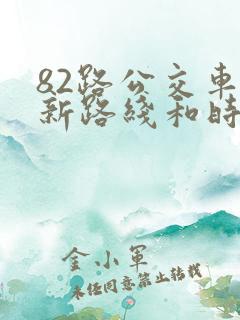 82路公交車
新路綫和時
金小軍
未经同意禁止转载